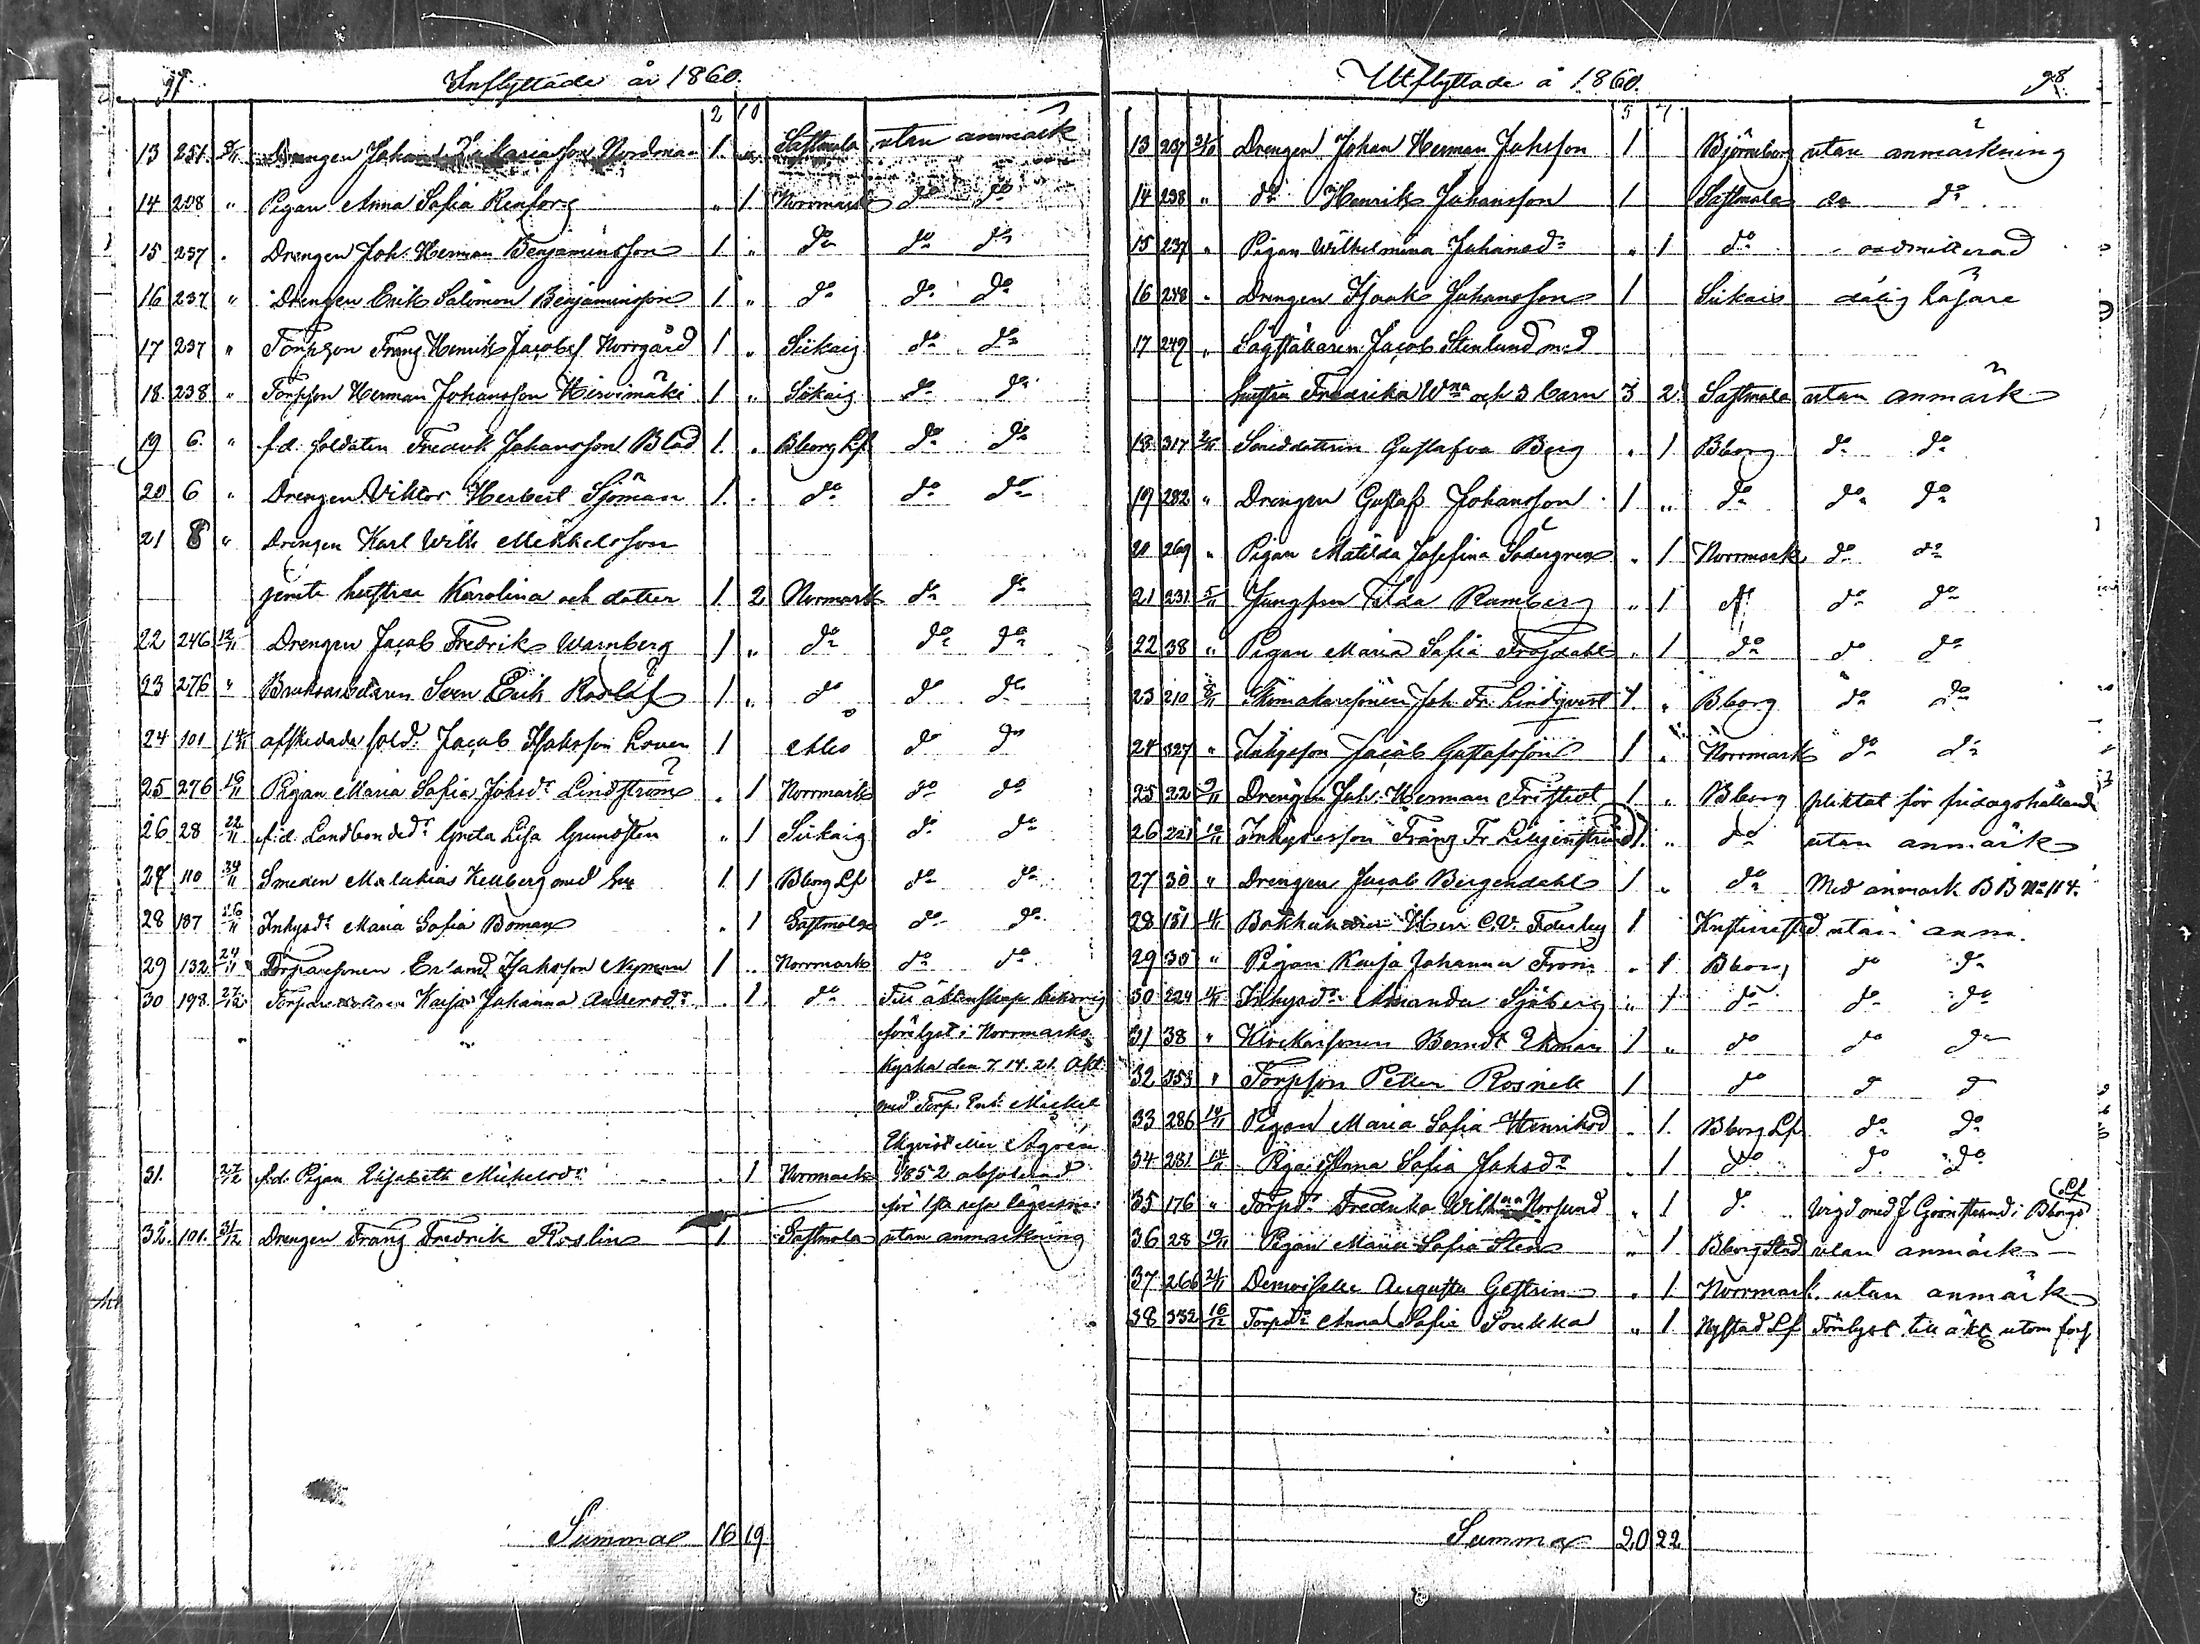 97. Inflyttade år 1860.
2 10
13 251 Drengen Johan Zakariasson Nordman 1 „ Sastmola utan anmärk
14 208 „ Pigan Anna Sofia Renfors „ 1 Norrmark do do
15 237 „ Drengen Joh. Herman Benjaminsson 1 „ do do do
16 237 „ Drengen Erik Salomon Benjaminsson 1 „ do do do
17 237 „ Torpson Franz Henrik Jacobss Norrgård 1 „ Siikaig do do
18. 238 „ Torpson Herman Johansson Hirvimäki 1 „ Siikaig do do
19 6. „ f.d. soldaten Fredrik Johansson Blad 1. „ Bborg Lf do do
20 6 „ Drengen Viktor Herbert Sjöman 1. „ do do do
21 8 „ Drengen Karl Wilh Mikkelsson
jemte hustru Karolina och dotter 1. 2 Normark do do
22 246 12/11 Drengen Jacob Fredrik Warnberg 1 „ do do do
23 276 „ Bruksarbetaren Sven Erik Roslöf 1 „ do do do
24 101 14/11 afskedade sold. Jacob Isaksson Loven 1 do do
25 276 19/11 Pigan Maria Sofia Johsdr Lindström „ 1 Norrmark do do
26 28 22/11 f.d. Landbondedr Greta Lisa Grundsten „ 1 Siikaig do do
27 110 Smeden Malakias Kellberg med hu 1. 1 Bborg Lf do do
28 187 Inhysdr Maria Sofia Boman „ 1 Sastmola do do
29 132 24/11 Torparesonen Erland Isaksson Nyman 1 „ Norrmark do do
30 198. 27/12 Kaisa Johanna Andersdr . 1. do Till äktenskap behörig
förelyst i Norrmarks
Kyrka den 7. 14. 21. Okt
med Torp. Enk. Mickel
Ekqvist eller Agren
31. 27/12 f.d. Pigan Elisabeth Mickelsdr . 1 Normark 1852 absolverad
för 1sta resa lägersm.
32. 101. 31/12 Drengen Franz Fredrik Roslin 1 Sastmola utan anmärkning
Summa 16 19

Utflyttade å 1860. 98.
5 7
13 237 Drengen Johan Herman Johsson 1 Björneborg utan anmärkning
14 238 „ do Henrik Johansson 1 Sastmola do do
15 237 „ Pigan Wilhelmina Johansdr „ 1 do oadmitterad
16 238 „ Drengen Isaak Johansson 1 Siikais dålig läsare
17 249 „ Sågställaren Jacob Stenlund med
hustru Fredrika Wna och 3 barn 3 2. Sastmola utan anmärk
18. 317 Gustafva Berg „ 1 Bborg do do
19 282 „ Drengen Gustaf Johansson 1 „ do do do
20 269 „ Pigan Matilda Josefina Södergren „ 1 Norrmark do do
21 231 5/11 Jungfrun Tilda Ramberg „ 1 do do do
22 38 „ Pigan Maria Sofia Fröjdahl „ 1 do do do
23 210 8/11 Skomakaresonen Joh. Fr. Lindqvist 1. „ Bborg do do
24 327 „ Inhysson Jacob Gustafsson 1 „ Norrmark do do
25 22 9/11 Drengen Joh. Herman Fristedt 1 „ Bborg pliktat för
26 221 Inhysesson Franz Fr. Liljenstrand 1. „ do utan anmärk
27 30 „ Drengen Jacob Bergendahl 1 „ do Med anmärk B B No 114.
28 151 Bokhållaren Herr C.V. 1 utan anm.
29 30 „ Pigan Kaisa Johanna From „ 1 Bborg do do
30 224 Inhysdr Amanda Sjöberg „ 1 do do do
31 38 „ Klockarsonen Berndt Ekman 1 „ do do do
32 353 „ Torpson Petter Rosnell 1 do do do
33 286 Pigan Maria Sofia Henriksd „ 1. Bborg Lf do do
34 281 Piga Anna Sofia Johsdr „ 1 do do do
35 176 „ Torpdr Fredrika Wilhna Norlund „ 1 do Vigd med J Grönstrand i Bborgs Lf.
36 28 19/11 Pigan Maria Sofia Sten „ 1. Bborg Stad utan anmärk
37 266 21/11 Demoiselle Augusta Gestrin „ 1. Norrmark. utan anmärk
38 332 16/12 Torpdr Anna Sofia Soukka „ 1. Nystad Lf Förelyst till äkt utom förs
Summa 20 22